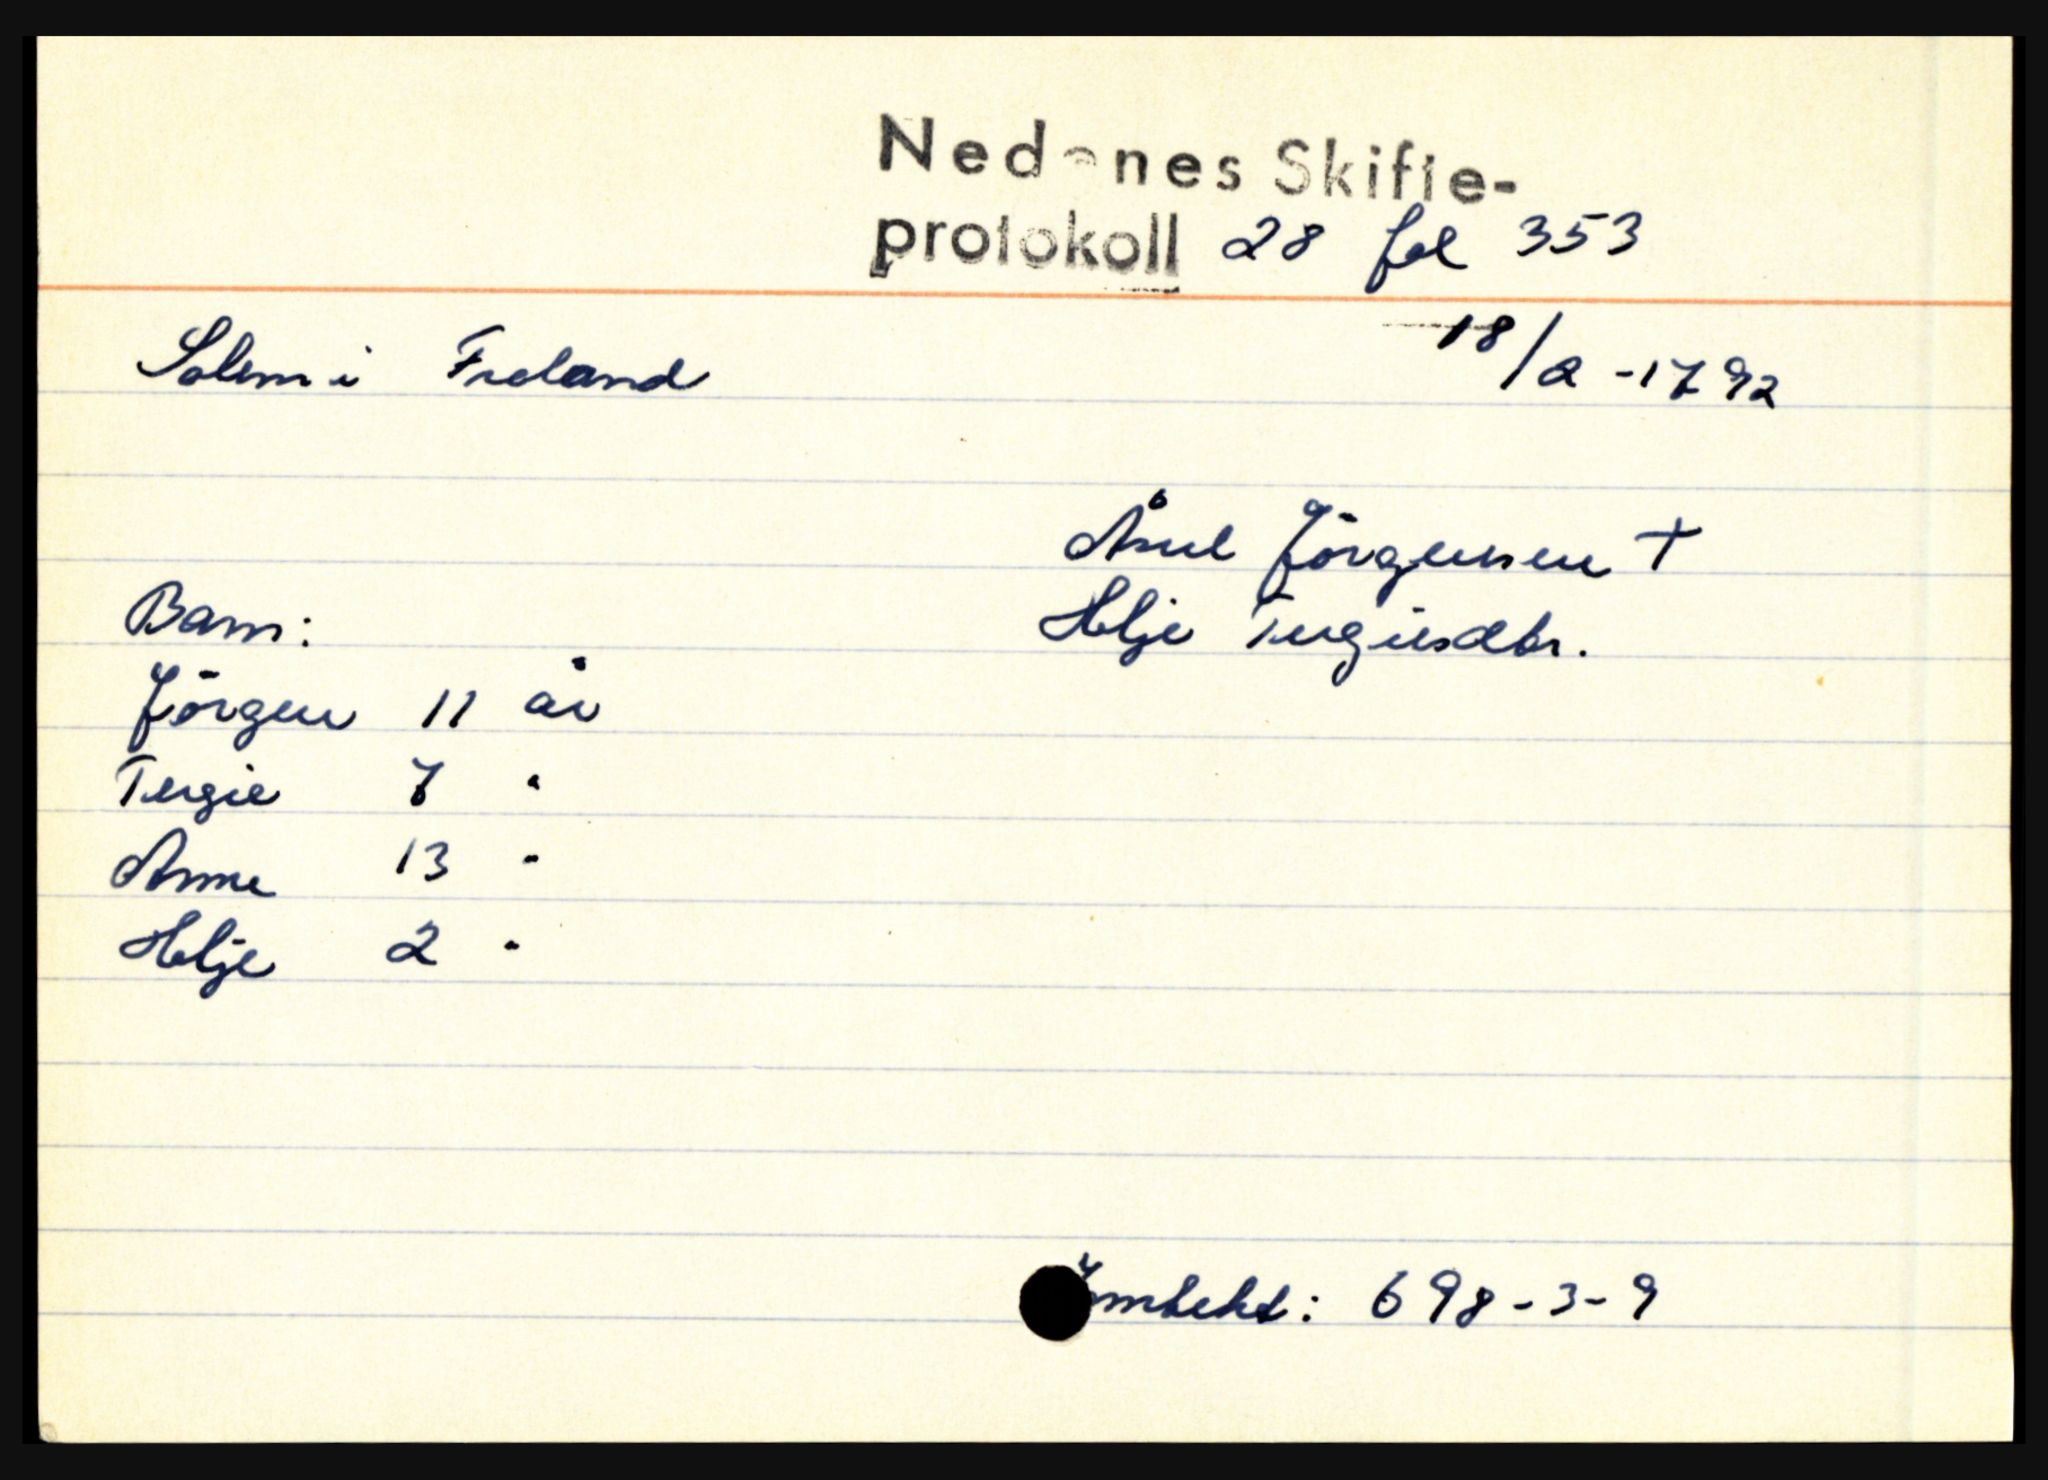 Nedenes Skifte-
protokoll 28 fol 353
Solem i Froland 18/2 -1792
Åsul Jörgensen †
Barn: Helje Tergiesdtr.
Jörgen 11 år
Tergie 7 "
Anne 13 "
Helje 2 "
Inntekt: 698-3-9